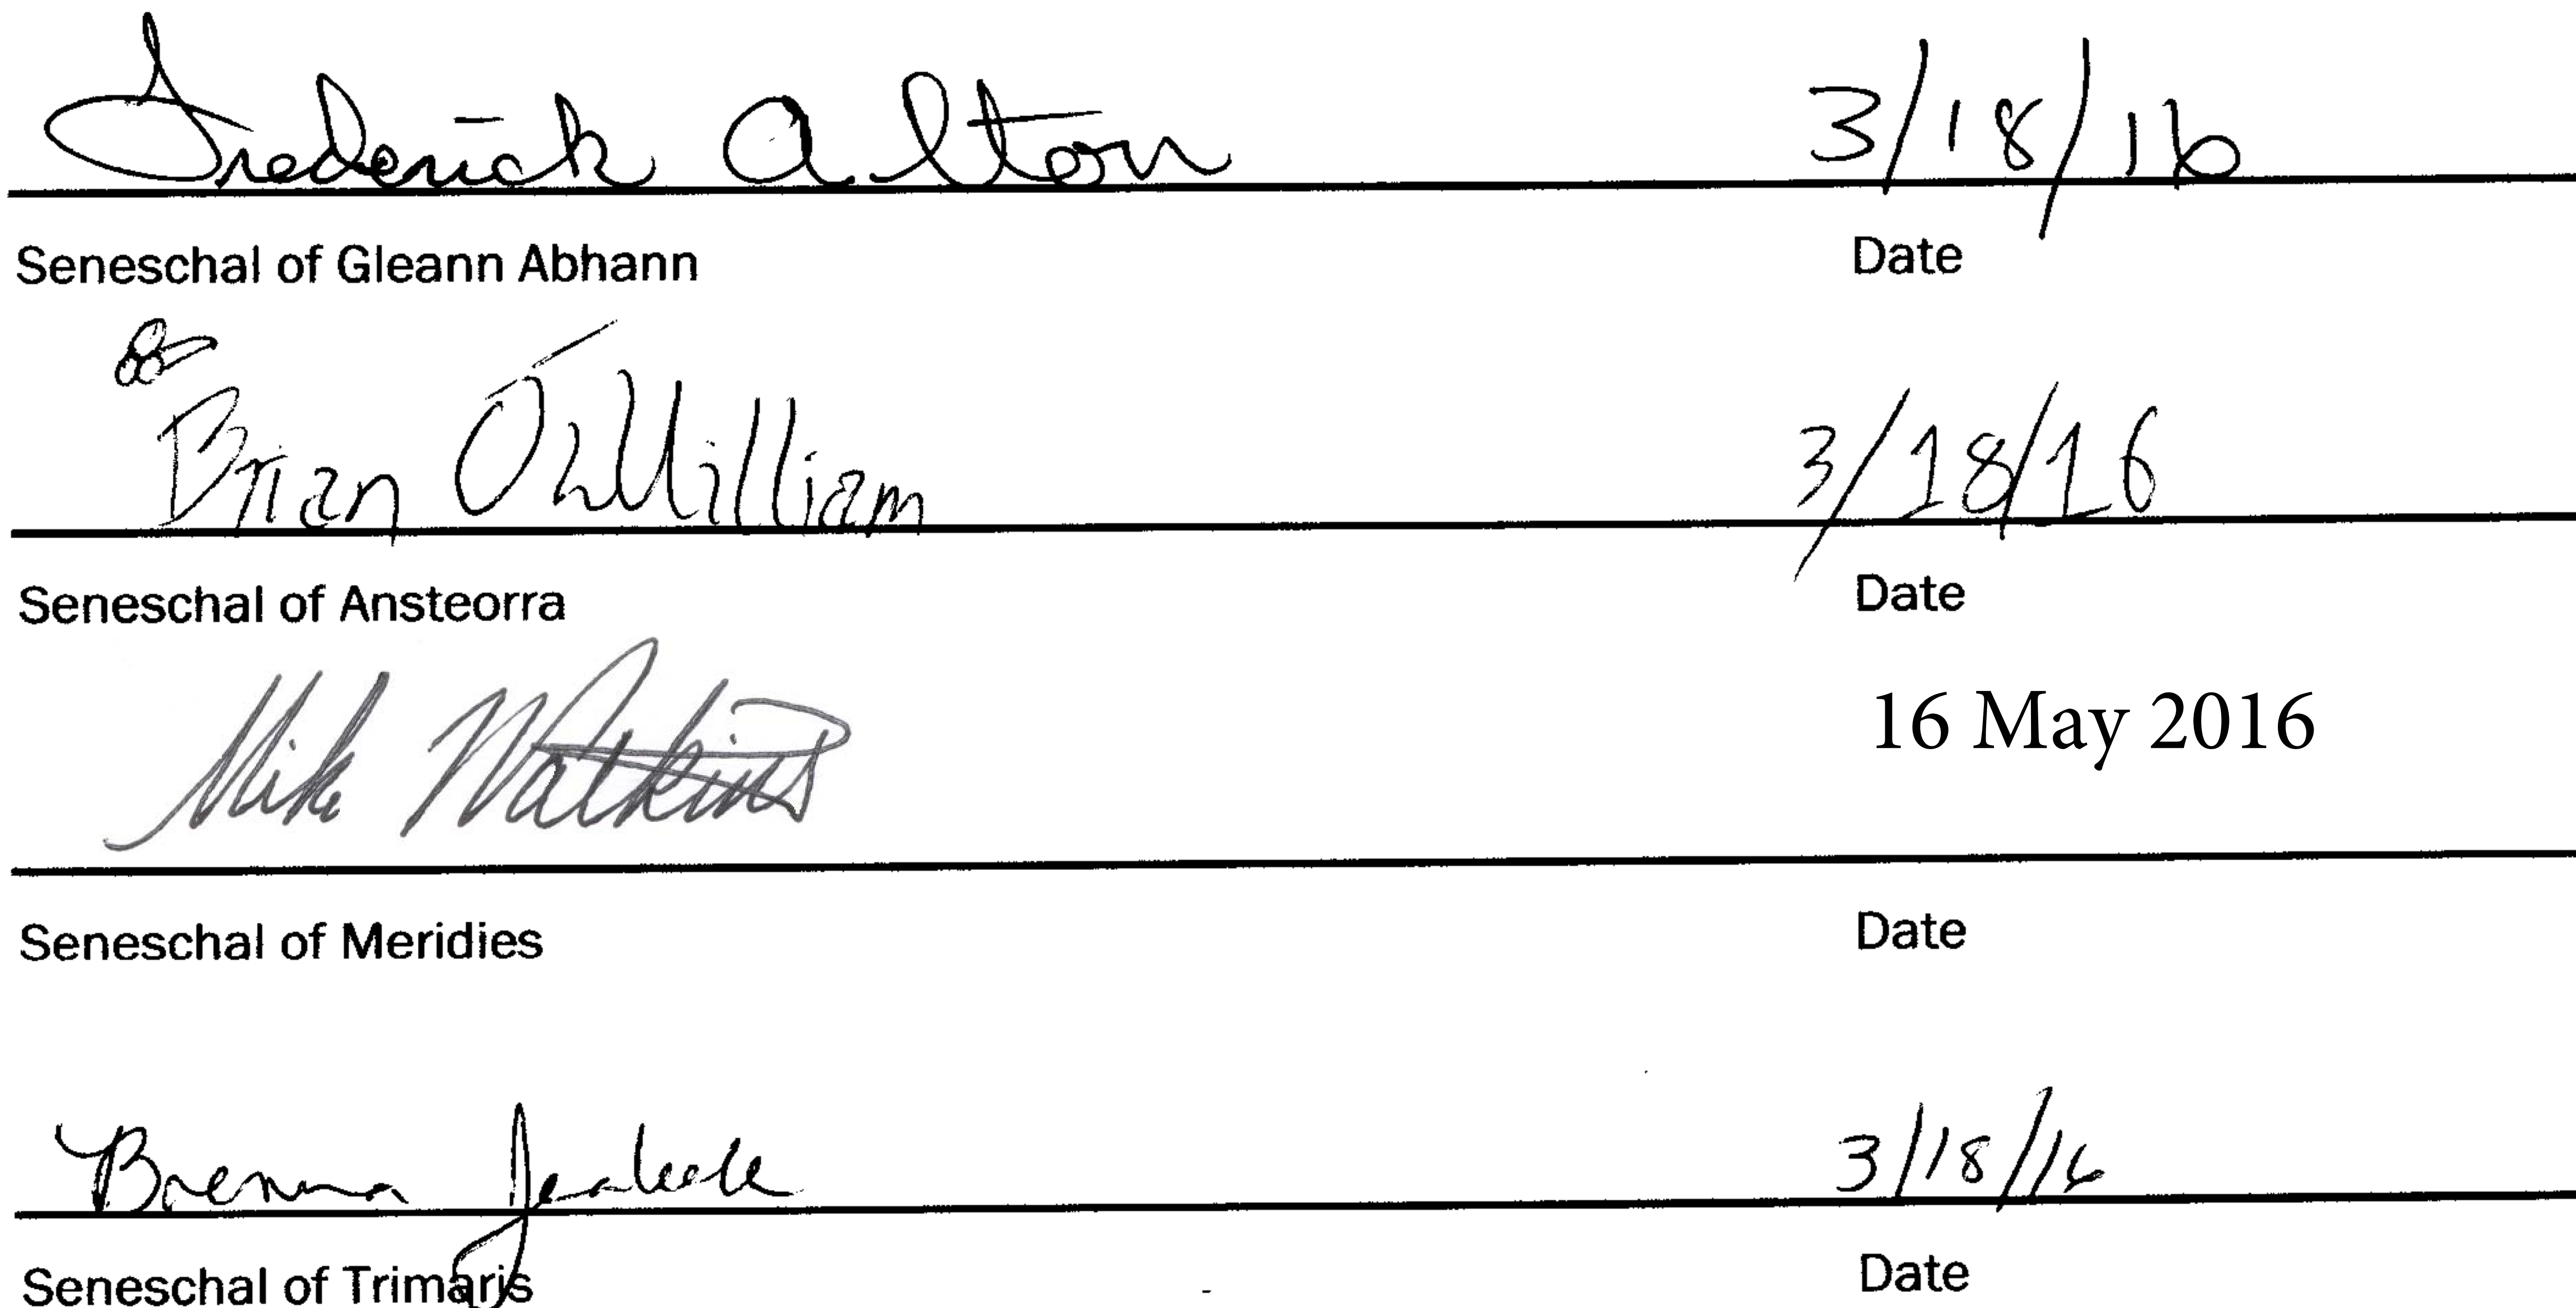 Frederick Alton 3/18/16
Seneschal of Gleann Abhann Date
Brian O'William 3/18/16
Seneschal of Ansteorra Date
Mike Watkins 16 May 2016
Seneschal of Meridies Date
Brenna 3/18/16
Seneschal of Trimaris Date